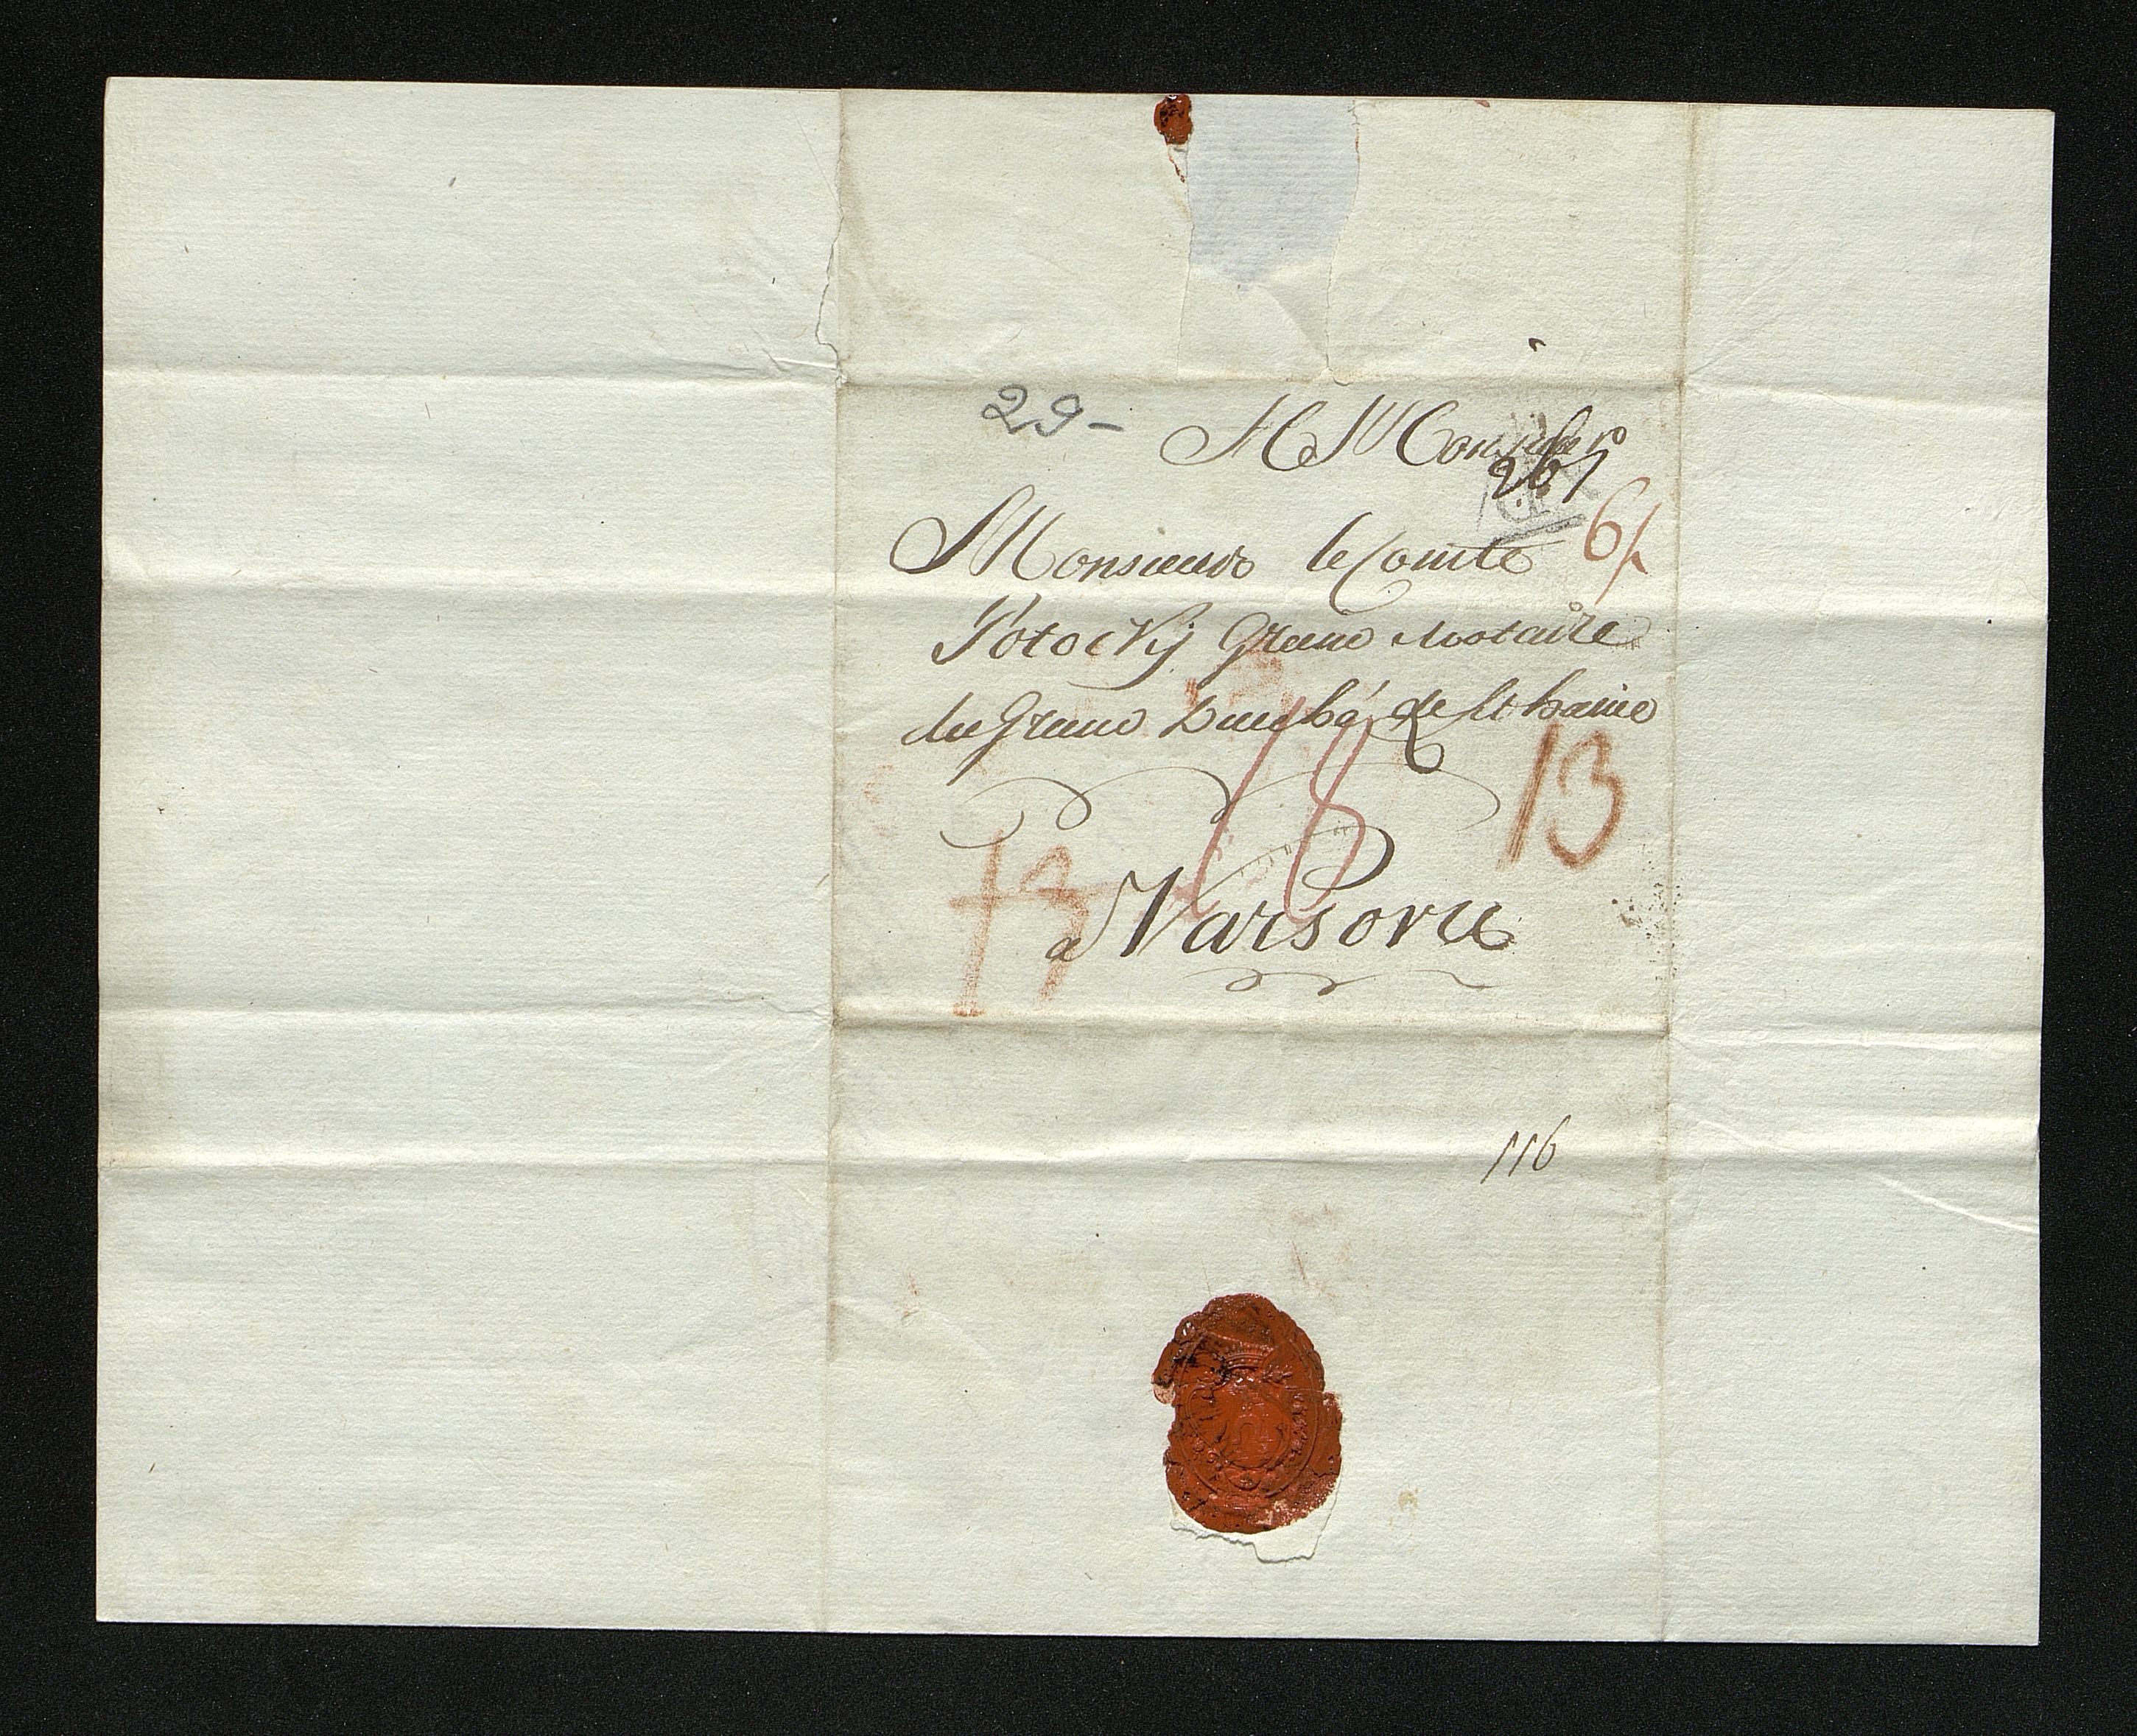 29-
A Monsieur
267
Monsieur le Comte
6/
Potocky Grand Notaire
du Grand Duché de Lithanie
18
13
13
a Varsovie
116